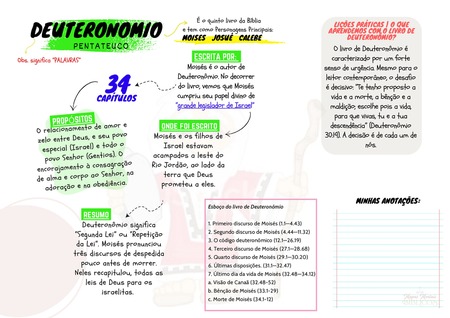 DEUTERONOMIO
PENTATEUCO
Obs: significa "PALAVRAS"
É o quinto livro da Bíblia
e tem como Personagens Principais:
MOISES JOSUÉ CALEBE
34
CAPÍTULOS
ESCRITA POR:
Moisés é o autor de
Deuteronômio. No decorrer
do livro, vemos que Moisés
cumpriu seu papel divino de
"grande legislador de Israel"
PROPÓSITOS
O relacionamento de amor e
zelo entre Deus, e seu povo
especial (Israel) e todo o
povo Senhor (Gentios). O
encorajamento à consagração
de alma e corpo ao Senhor, na
adoração e na obediência.
ONDE FOI ESCRITO
Moisés e os filhos de
Israel estavam
acampados a leste do
Rio Jordão, ao lado da
terra que Deus
prometeu a eles.
RESUMO
Deuteronômio significa
"Segunda Lei" ou "Repetição
da Lei". Moisés pronunciou
três discursos de despedida
pouco antes de morrer.
Neles recapitulou, todas as
leis de Deus para os
israelitas.
Esboço do livro de Deuteronômio
1. Primeiro discurso de Moisés (1.1—4.43)
2. Segundo discurso de Moisés (4.44—11.32)
3. O código deuteronômico (12.1—26.19)
4. Terceiro discurso de Moisés (27.1—28.68)
5. Quarto discurso de Moisés (29.1—30.20)
6. Últimas disposições. (31.1—32.47)
7. Último dia da vida de Moisés (32.48—34.12)
a. Visão de Canaã (32.48-52)
b. Bênção de Moisés (33.1-29)
c. Morte de Moisés (34.1-12)
LIÇÕES PRÁTICAS | O QUE
APRENDEMOS COM O LIVRO DE
DEUTERONÔMIO?
O livro de Deuteronômio é
caracterizado por um forte
senso de urgência. Mesmo para o
leitor contemporâneo, o desafio
é decisivo: "Te tenho proposto a
vida e a morte, a bênção e a
maldição; escolhe pois a vida,
para que vivas, tu e a tua
descendência" (Deuteronômio
30.19). A decisão é de cada um de
nós.
MINHAS ANOTAÇÕES: